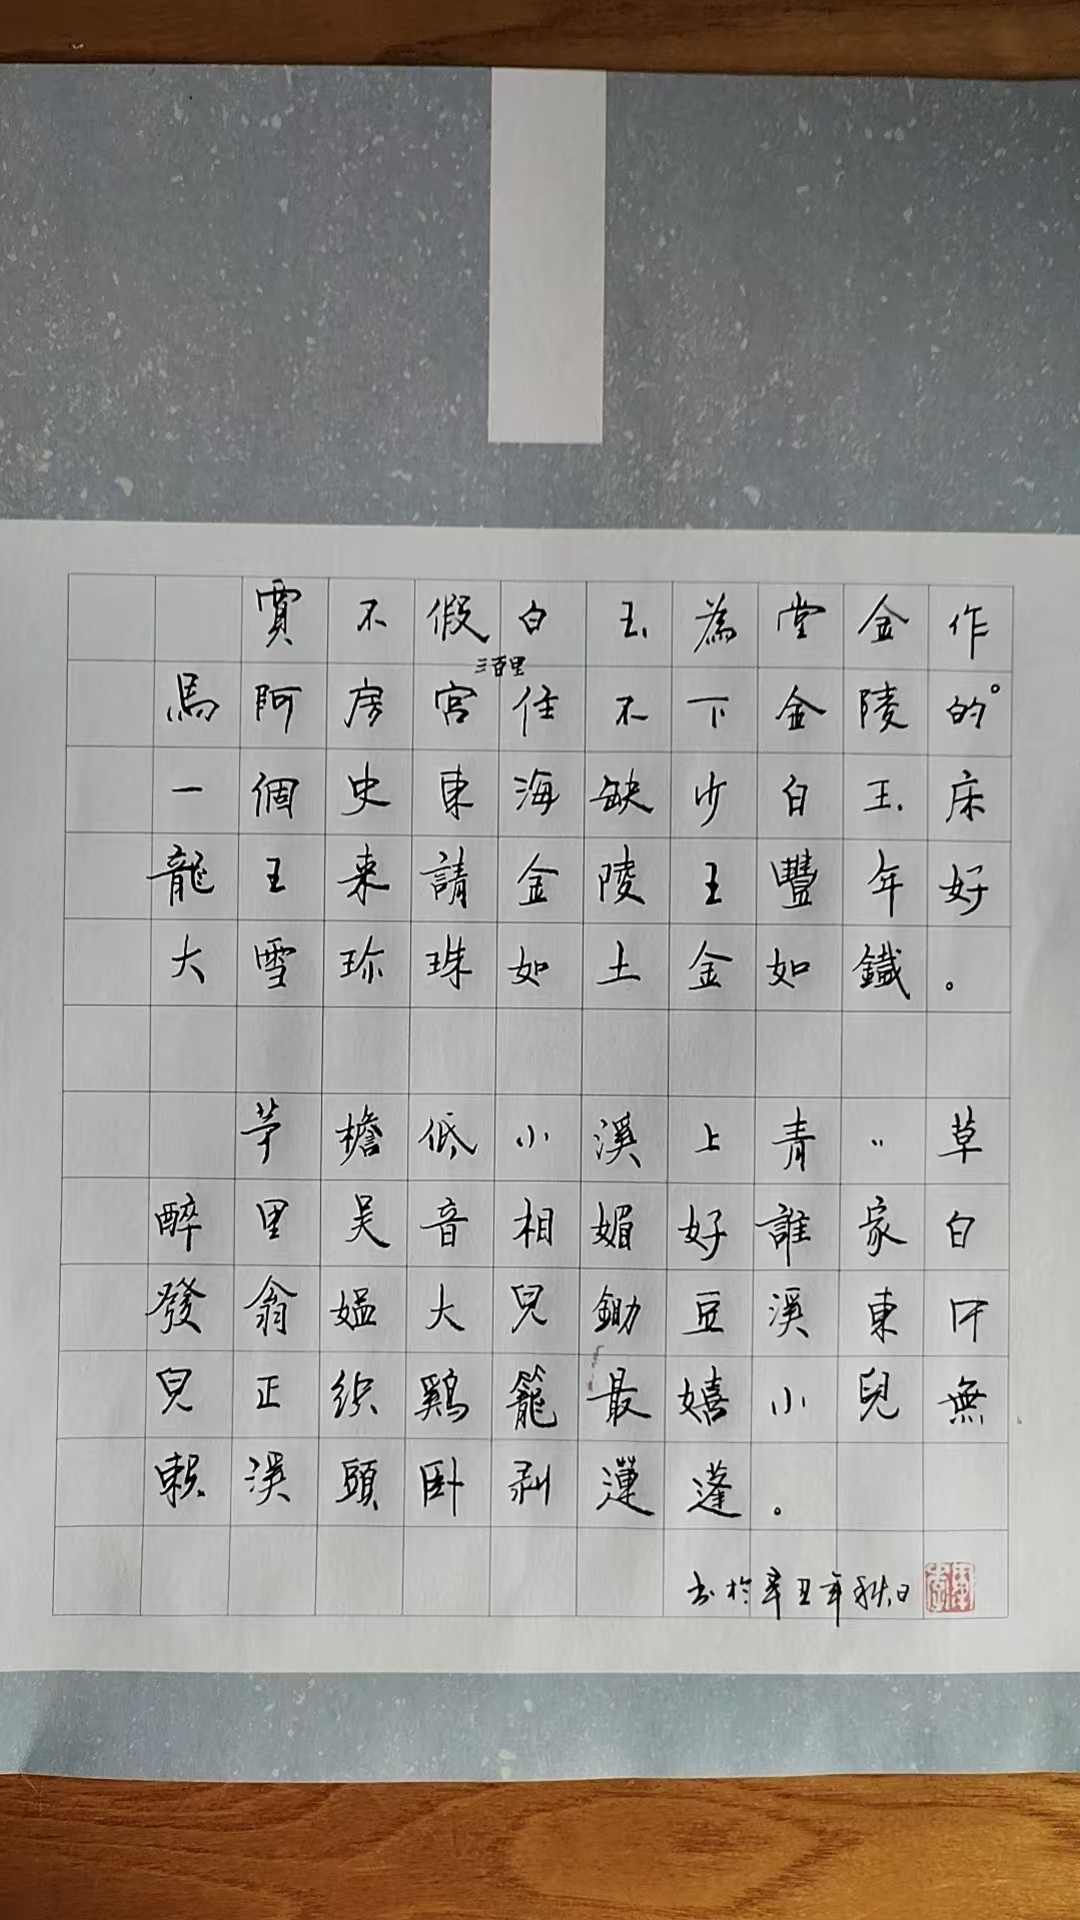 賈不假白玉為堂金作
三百里
馬阿房宮住不下金陵的。
一個史東海缺少白玉床
龍王来請金陵王豐年好
大雪珍珠如土金如鐵。
茅檐低小溪上青〃草
醉里吴音相媚好誰家白
發翁媼大兒鋤豆溪東
兒正织鷄籠最嬉小兒無
賴溪頭卧剥蓮蓬。
书於辛丑年秋日